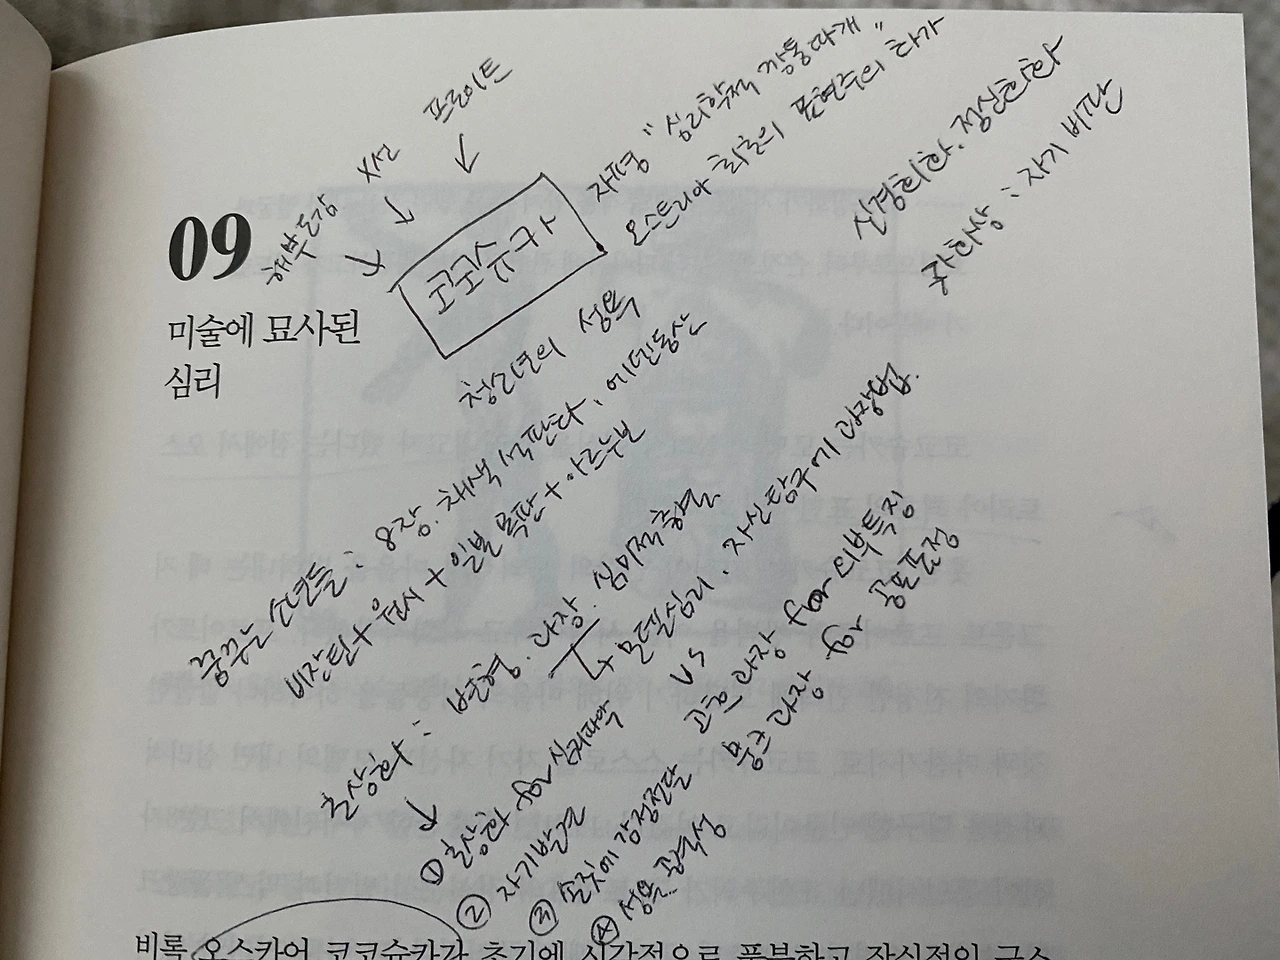 09
미술에 묘사된
심리
해부도감
X선
프로이트
코코슈카
재평 "심리학적 깡통따개"
오스트리아 최초의 표현주의 화가
신경희화. 정신희화
자화상 : 자기 비판
청소년의 성욕
꿈꾸는 소년들 : 8장. 채색 석판화. 에덴동산
비잔틴 + 원시 + 일본 목판 + 아르누보
초상화 : 변형. 과장. 심미적 희열
모델심리. 자신탐구에 과장법.
vs
고흐 과장 for 외부특징
뭉크 과장 for 공포표정
① 초상화 for 심리파악
② 자기발견
③ 손짓에 감정전달
④ 성욕. 공격성
비록 오스카어 코코슈카가 초기에 시각적으로 풍부하고 장식적인 구스